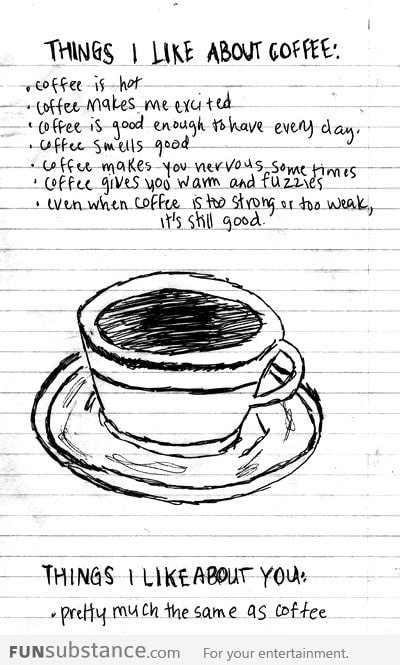 THINGS I LIKE ABOUT COFFEE:
• coffee is hot
• coffee makes me excited
• coffee is good enough to have every day.
• coffee smells good
• coffee makes you nervous sometimes
• coffee gives you warm and fuzzies
• even when coffee is too strong or too weak,
it's still good.
THINGS I LIKE ABOUT YOU:
• pretty much the same as coffee
FUNsubstance.com For your entertainment.